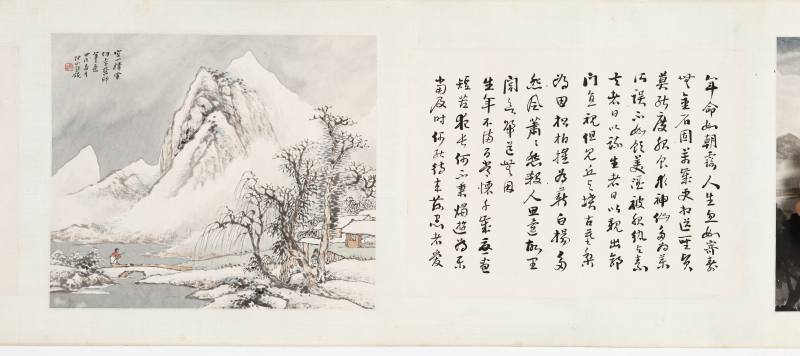 年命如朝露人生忽如寄壽
無金石固萬歲更相送聖賢
莫能度服食求神仙多為藥
所誤不如飲美酒被服紈與素
去者日以疏生者日以親出郭
門直視但見丘與墳古墓犁
為田松柏摧為薪白楊多
悲風蕭蕭愁殺人思還故里
閭欲歸道無因
生年不滿百常懷千歲憂晝
短苦夜長何不秉燭遊為樂
當及時何能待來茲愚者愛
空山積雪
筆意